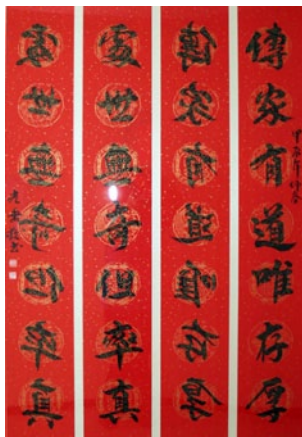 傳家有道唯存厚
傳家有道唯存厚
處世無奇但率真
處世無奇但率真